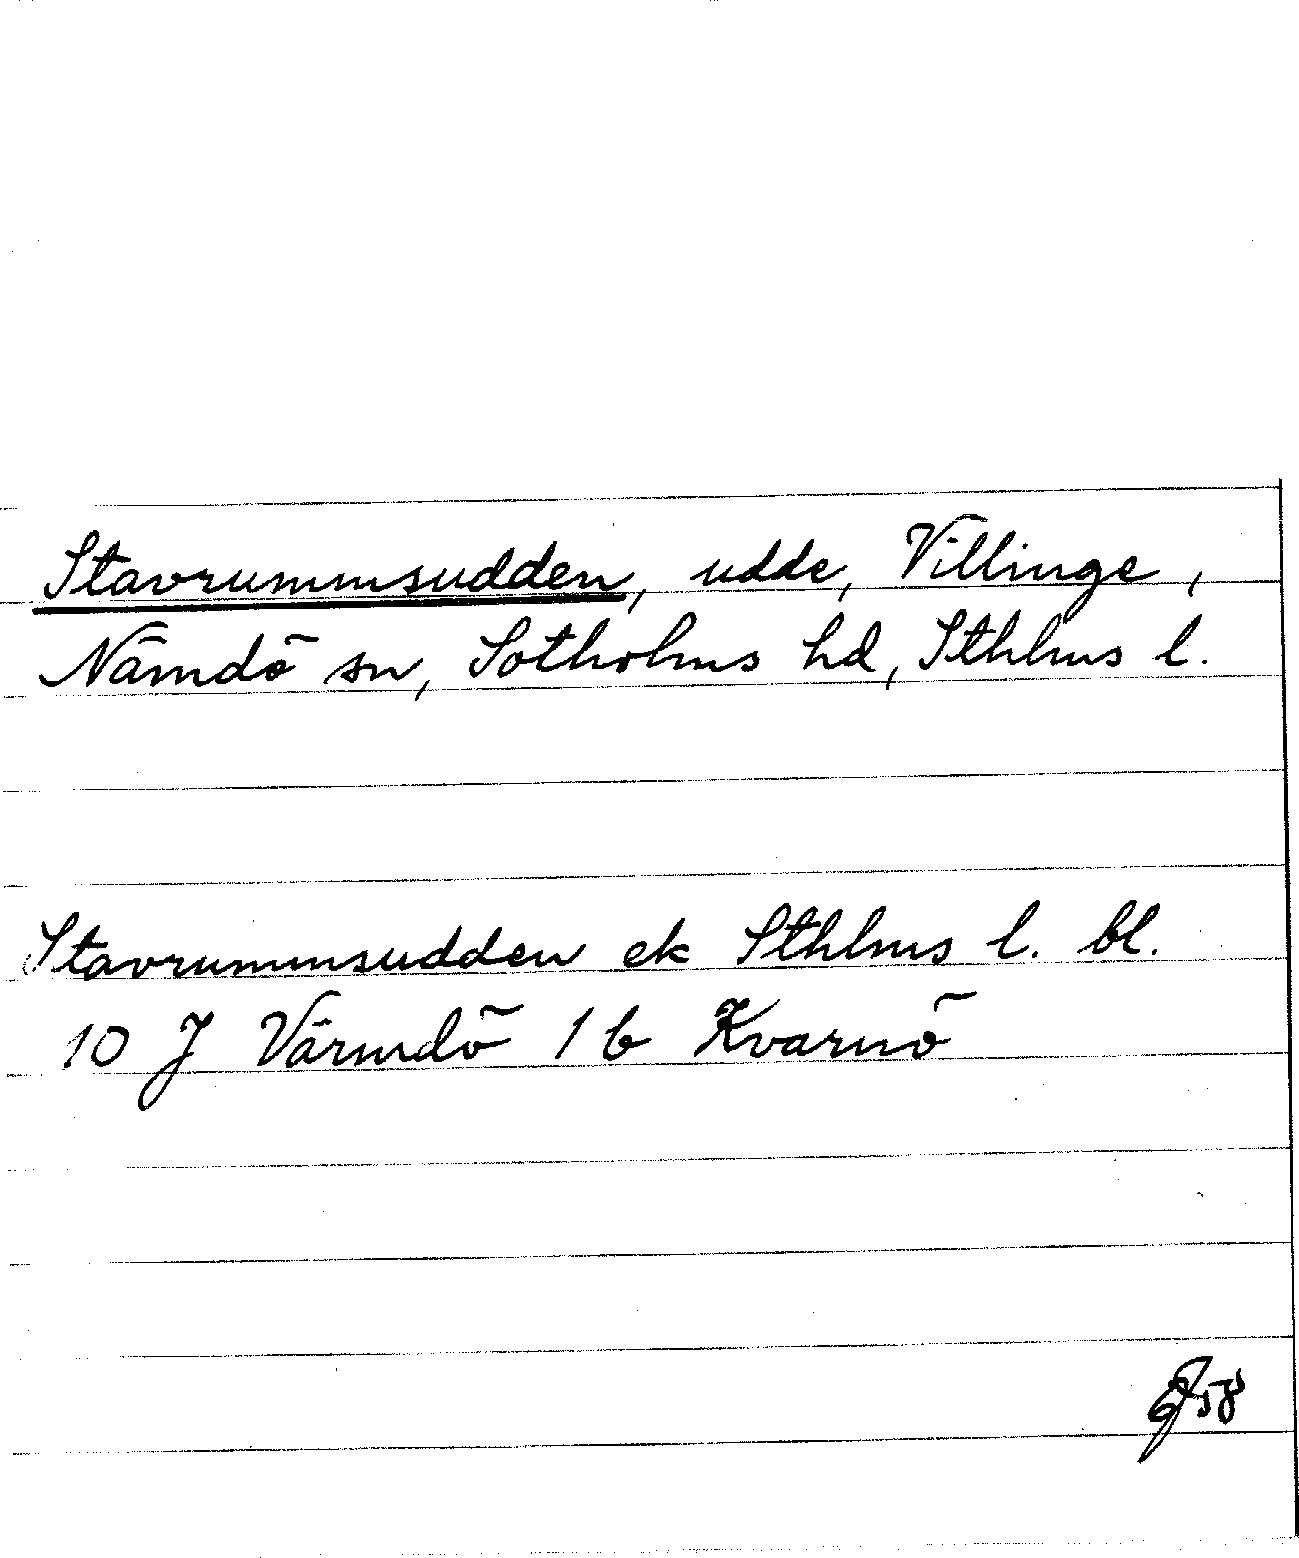 Stavrummsudden, udde, Villinge,
Nämdö sn, Sotholms hd, Sthlms l.
Stavrummsudden ek Sthlms l. bl.
10 J Värmdö 1 b Kvarnö
58